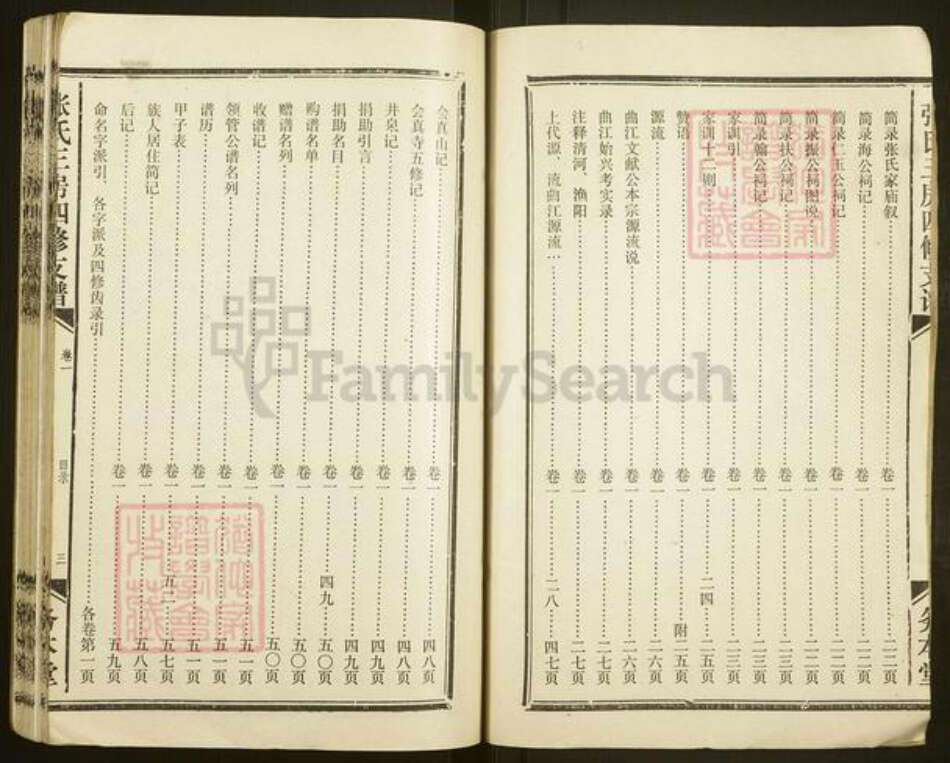 简录张氏家庙叙 卷一 二二页
简录海公祠记 卷一 二二页
简录仁玉公祠记 卷一 二二页
简录振公祠图说 卷一 二二页
简录扶公祠记 卷一 二二页
简录翰公祠记 卷一 二三页
家训引 卷一 二三页
家训十二则 卷一 二四 二五页
赞语 卷一 附二五页
源流 卷一 二六页
曲江文献公本宗源流说 卷一 二六页
曲江始兴考实录 卷一 二七页
注释清河、渔阳 卷一 二七页
上代源、流曲江源流 卷一 二八 四七页
会真山记 卷一 四八页
会真寺五修记 卷一 四八页
井泉记 卷一 四八页
捐助引言 卷一 四九页
捐助名目 卷一 四九页
购谱名单 卷一 四九 五〇页
赠谱名列 卷一 五〇页
收谱记 卷一 五〇页
领管公谱名列 卷一 五一页
谱历 卷一 五一页
甲子表 卷一 五二 五七页
族人居住简记 卷一 五八页
后记 卷一 五九页
命名字派引、各字派及四修齿录引 各卷第一页
张氏三房四修支谱 卷一 目录 三 务本堂
FamilySearch